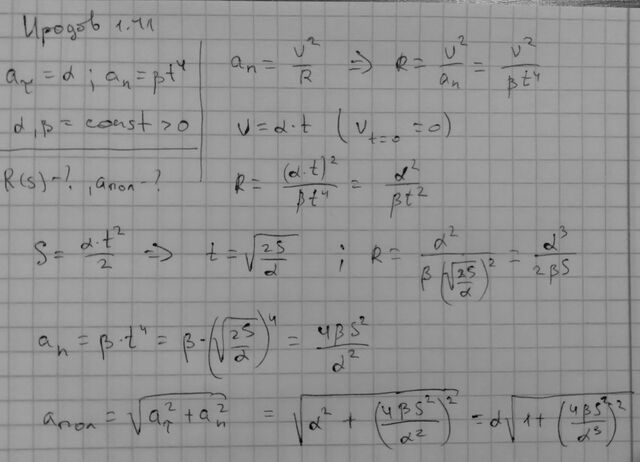 Иродов 1.41
a_τ = α ; a_n = βt⁴
α, β = const > 0
R(S) - ? , a_пол - ?
a_n = v²/R ⇒ R = v²/a_n = v²/(βt⁴)
v = α·t (v_{t=0} = 0)
R = (α·t)²/(βt⁴) = α²/(βt²)
S = α·t²/2 ⇒ t = √(2S/α) ; R = α²/(β(√(2S/α))²) = α³/(2βS)
a_n = β·t⁴ = β·(√(2S/α))⁴ = 4βS²/α²
a_пол = √(a_τ² + a_n²) = √(α² + (4βS²/α²)²) = α√(1 + (4βS²/α³)²)